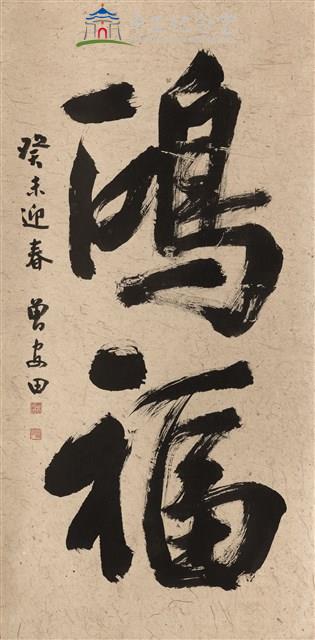 中正紀念堂
鴻福
癸未迎春 曾安田